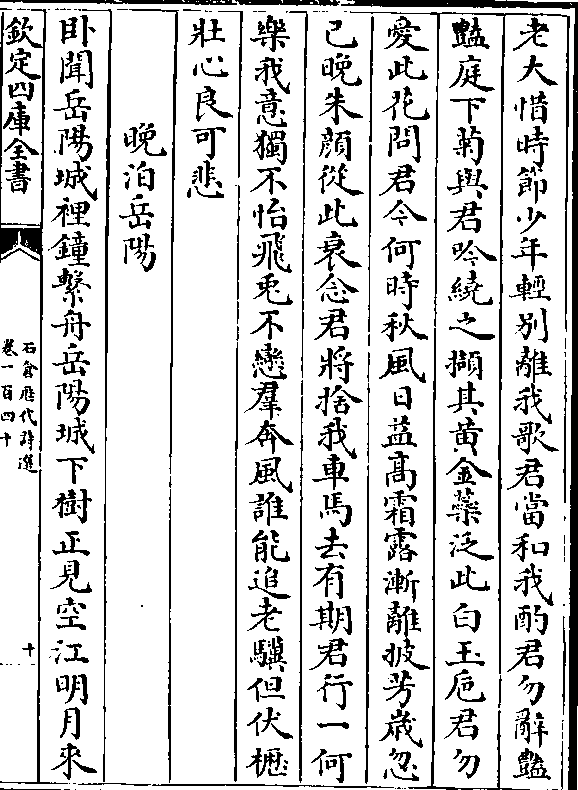 老大惜時節少年輕別離我歌君當和我酌君勿辭豔
豔庭下菊與君吟繞之擷其黃金蘂泛此白玉巵君勿
愛此花問君今何時秋風日益高霜露漸離披芳歳忽
已晚朱顔從此衰念君將捨我車馬去有期君行一何
樂我意獨不怡飛兎不戀羣奔風誰能追老驥但伏櫪
壯心良可悲
晚泊岳陽
臥聞岳陽城裡鐘繫舟岳陽城下樹正見空江明月來
欽定四庫全書
石倉歴代詩選
卷一百四十
十